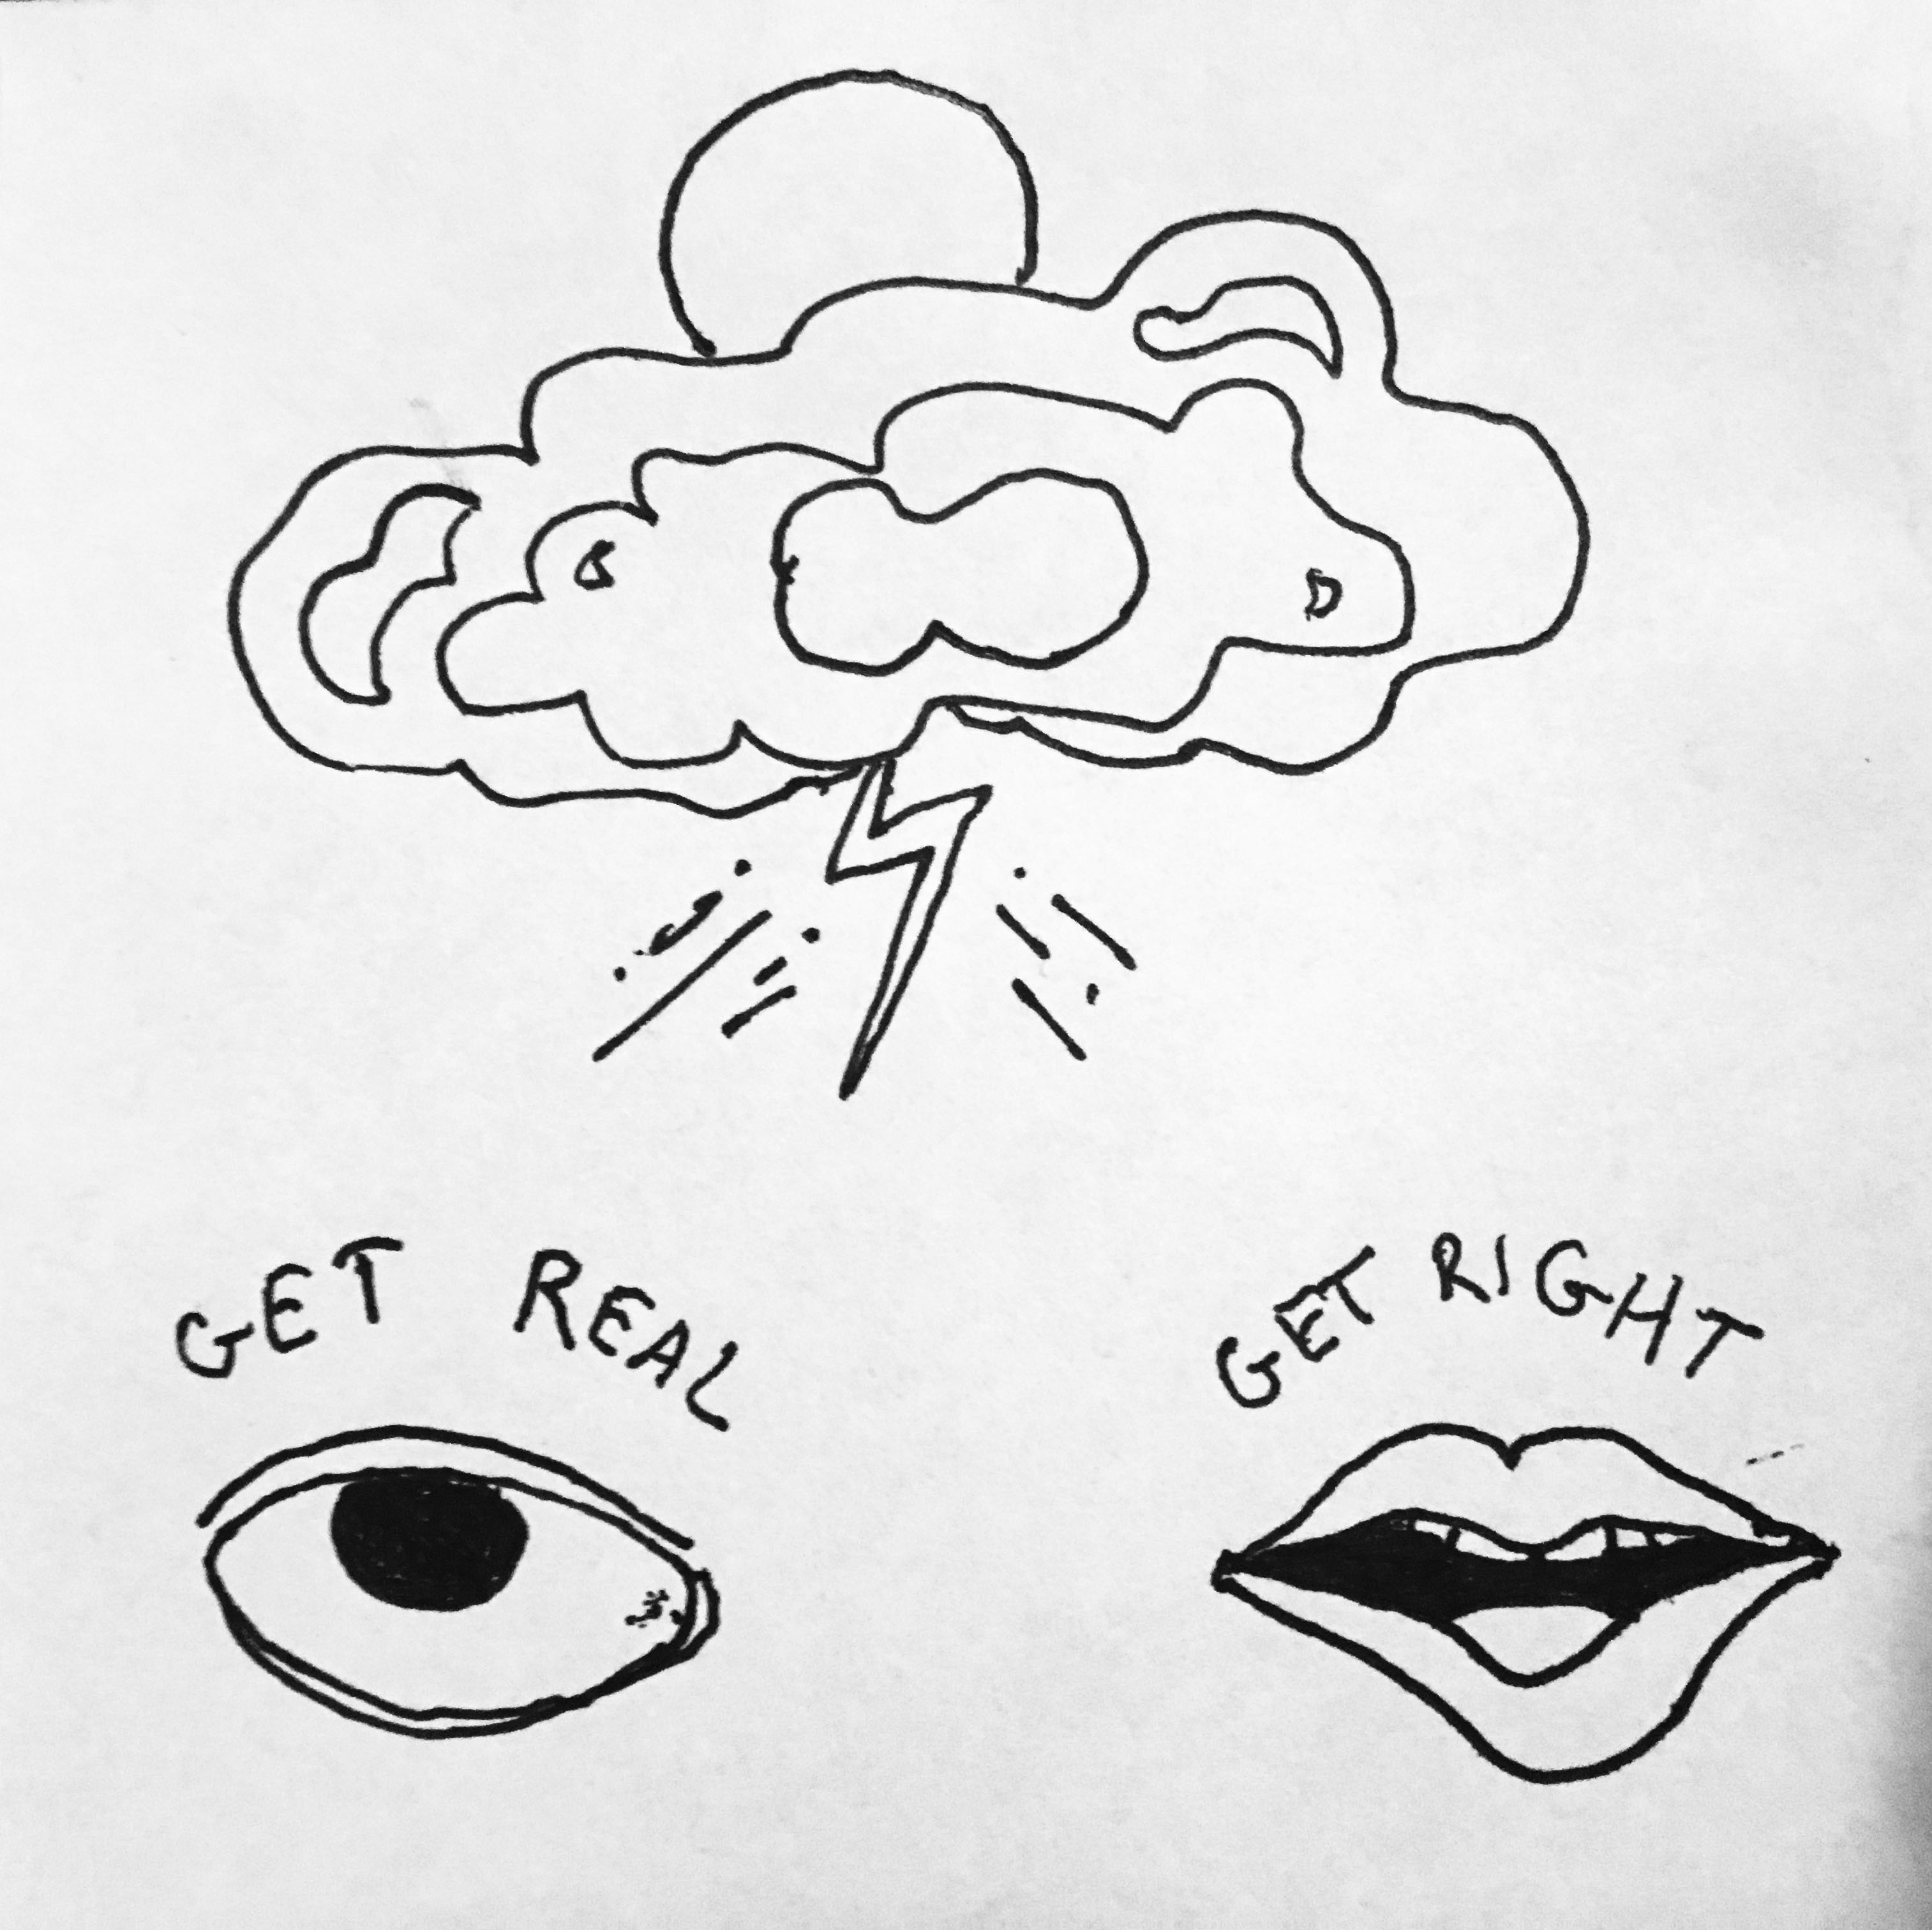 GET REAL
GET RIGHT